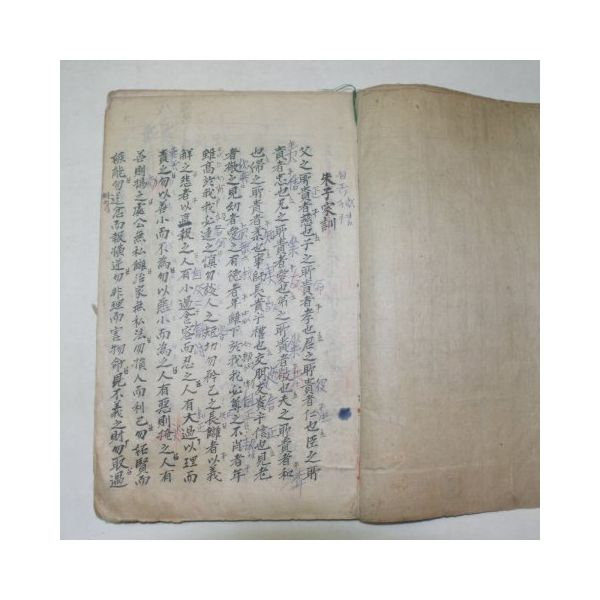 朱子家訓
父之所貴者慈也子之所貴者孝也君之所貴者仁也臣之所
貴者忠也兄之所貴者愛也弟之所貴者敬也夫之所貴者和
也婦之所貴者柔也事師長貴乎禮也交朋友貴乎信也見老
者敬之見幼者愛之有德者年雖下於我我必尊之不肖者年
雖高於我我必遠之愼勿談人之短切勿矜己之長讎者以義
解之怨者以直報之人有小過含容而忍之人有大過以理而
責之勿以善小而不爲勿以惡小而爲之人有惡則掩之人有
善則揚之處公無私讎治家無私法勿損人而利己勿妬賢而
嫉能勿逞忿而報橫逆勿非理而害物命見不義之財勿取過